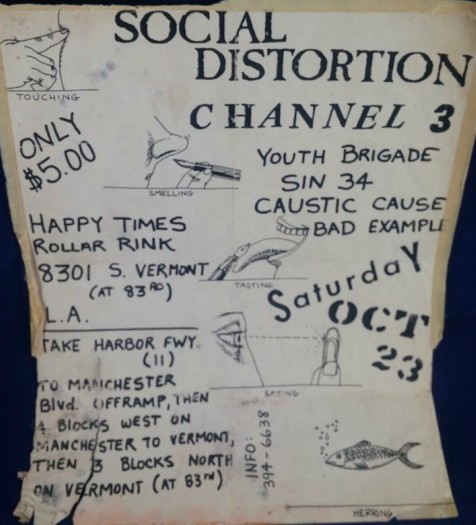 SOCIAL
DISTORTION
TOUCHING
CHANNEL 3
ONLY
$5.00
SMELLING
YOUTH BRIGADE
SIN 34
CAUSTIC CAUSE
BAD EXAMPLE
HAPPY TIMES
ROLLAR RINK
8301 S. VERMONT
(AT 83RD)
L.A.
TASTING
Saturday
OCT
23
TAKE HARBOR FWY.
(11)
TO MANCHESTER
Blvd. OFFRAMP, THEN
4 BLOCKS WEST ON
MANCHESTER TO VERMONT,
THEN 3 BLOCKS NORTH
ON VERMONT (AT 83rd)
SEEING
INFO:
394-6638
HERRING